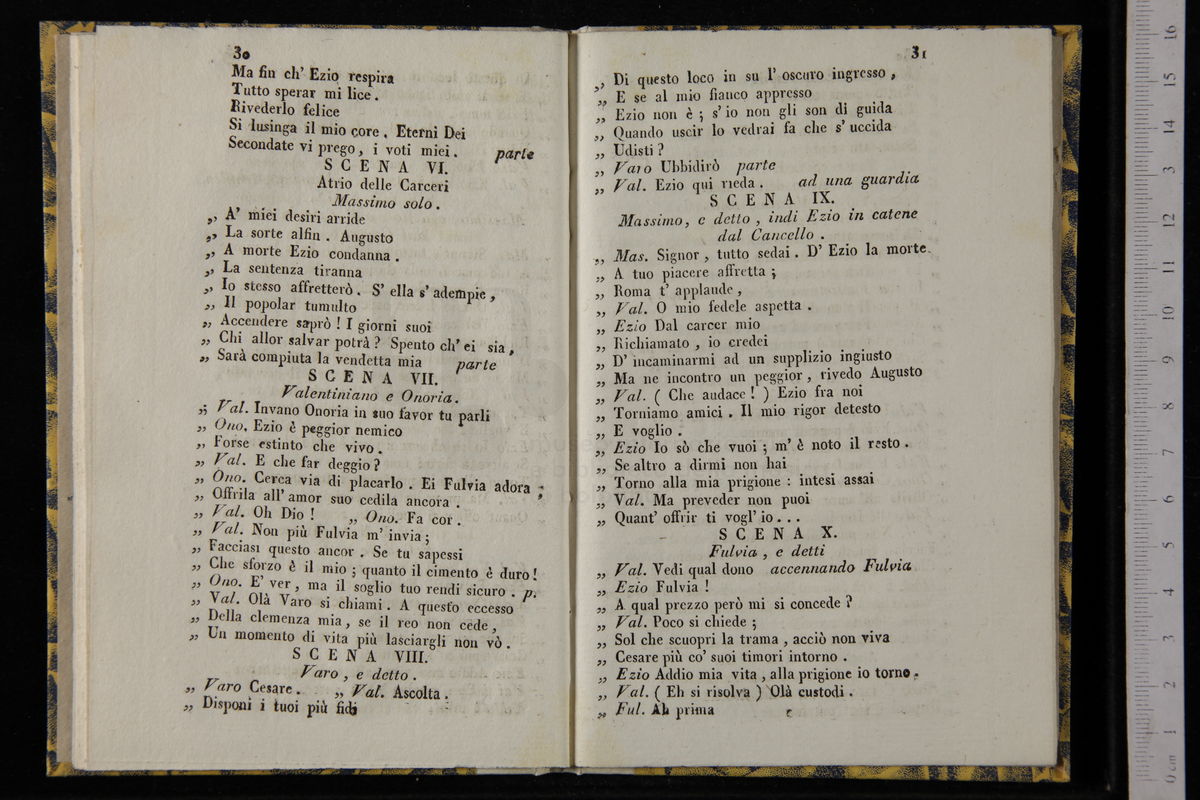 30
Ma fin ch' Ezio respira
Tutto sperar mi lice.
Rivederlo felice
Si lusinga il mio core. Eterni Dei
Secondate vi prego, i voti miei. parte
SCENA VI.
Atrio delle Carceri
Massimo solo.
„ A' miei desiri arride
„ La sorte alfin. Augusto
„ A morte Ezio condanna.
„ La sentenza tiranna
„ Io stesso affretterò. S' ella s' adempie,
„ Il popolar tumulto
„ Accendere saprò! I giorni suoi
„ Chi allor salvar potrà? Spento ch' ei sia,
„ Sarà compiuta la vendetta mia parte
SCENA VII.
Valentiniano e Onoria.
„ Val. Invano Onoria in suo favor tu parli
„ Ono. Ezio è peggior nemico
„ Forse estinto che vivo.
„ Val. E che far deggio?
„ Ono. Cerca via di placarlo. Ei Fulvia adora
„ Offrila all' amor suo cedila ancora.
„ Val. Oh Dio! „ Ono. Fa cor.
„ Val. Non più Fulvia m' invia;
„ Facciasi questo ancor. Se tu sapessi
„ Che sforzo è il mio; quanto il cimento è duro!
„ Ono. E' ver, ma il soglio tuo rendi sicuro. p.
„ Val. Olà Varo si chiami. A questo eccesso
„ Della clemenza mia, se il reo non cede,
„ Un momento di vita più lasciargli non vò.
SCENA VIII.
Varo, e detto.
„ Varo Cesare. „ Val. Ascolta.
„ Disponi i tuoi più fidi
31
„ Di questo loco in su l' oscuro ingresso,
„ E se al mio fianco appresso
„ Ezio non è; s' io non gli son di guida
„ Quando uscir lo vedrai fa che s' uccida
„ Udisti?
„ Varo Ubbidirò parte
„ Val. Ezio qui rieda. ad una guardia
SCENA IX.
Massimo, e detto, indi Ezio in catene
dal Cancello.
„ Mas. Signor, tutto sedai. D' Ezio la morte
„ A tuo piacere affretta;
„ Roma t' applaude,
„ Val. O mio fedele aspetta.
„ Ezio Dal carcer mio
„ Richiamato, io credei
„ D' incaminarmi ad un supplizio ingiusto
„ Ma ne incontro un peggior, rivedo Augusto
„ Val. ( Che audace! ) Ezio fra noi
„ Torniamo amici. Il mio rigor detesto
„ E voglio.
„ Ezio Io sò che vuoi; m' è noto il resto.
„ Se altro a dirmi non hai
„ Torno alla mia prigione: intesi assai
„ Val. Ma preveder non puoi
„ Quant' offrir ti vogl' io...
SCENA X.
Fulvia, e detti
„ Val. Vedi qual dono accennando Fulvia
„ Ezio Fulvia!
„ A qual prezzo però mi si concede?
„ Val. Poco si chiede;
„ Sol che scuopri la trama, acciò non viva
„ Cesare più co' suoi timori intorno.
„ Ezio Addio mia vita, alla prigione io torno.
„ Val. ( Eh si risolva ) Olà custodi.
„ Ful. Ah prima
0 cm 1 2 3 4 5 6 7 8 9 10 11 12 13 14 15 16